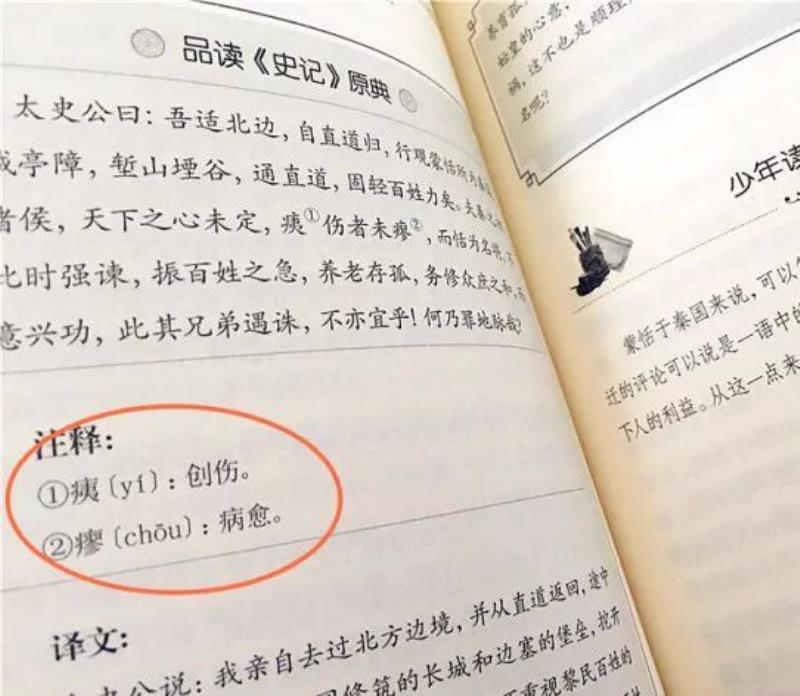 品读《史记》原典
太史公曰：吾适北边，自直道归，行观蒙恬所为秦
城亭障，堑山堙谷，通直道，固轻百姓力矣。夫秦之
者侯，天下之心未定，痍①伤者未瘳②，而恬为名将，不
此时强谏，振百姓之急，养老存孤，务修众庶之和，而
意兴功，此其兄弟遇诛，不亦宜乎！何乃罪地脉哉？
注释：
①痍（yí）：创伤。
②瘳（chōu）：病愈。
译文：
太史公说：我亲自去过北方边境，并从直道返回，途中
修筑的长城和边塞的堡垒，挖开
重视黎民百姓的
始皇的心意，
祸，这不也是顺理
名呢？
少年读
蒙恬于秦国来说，可以
迁的评论可以说是一语中的
下人的利益。从这一点来